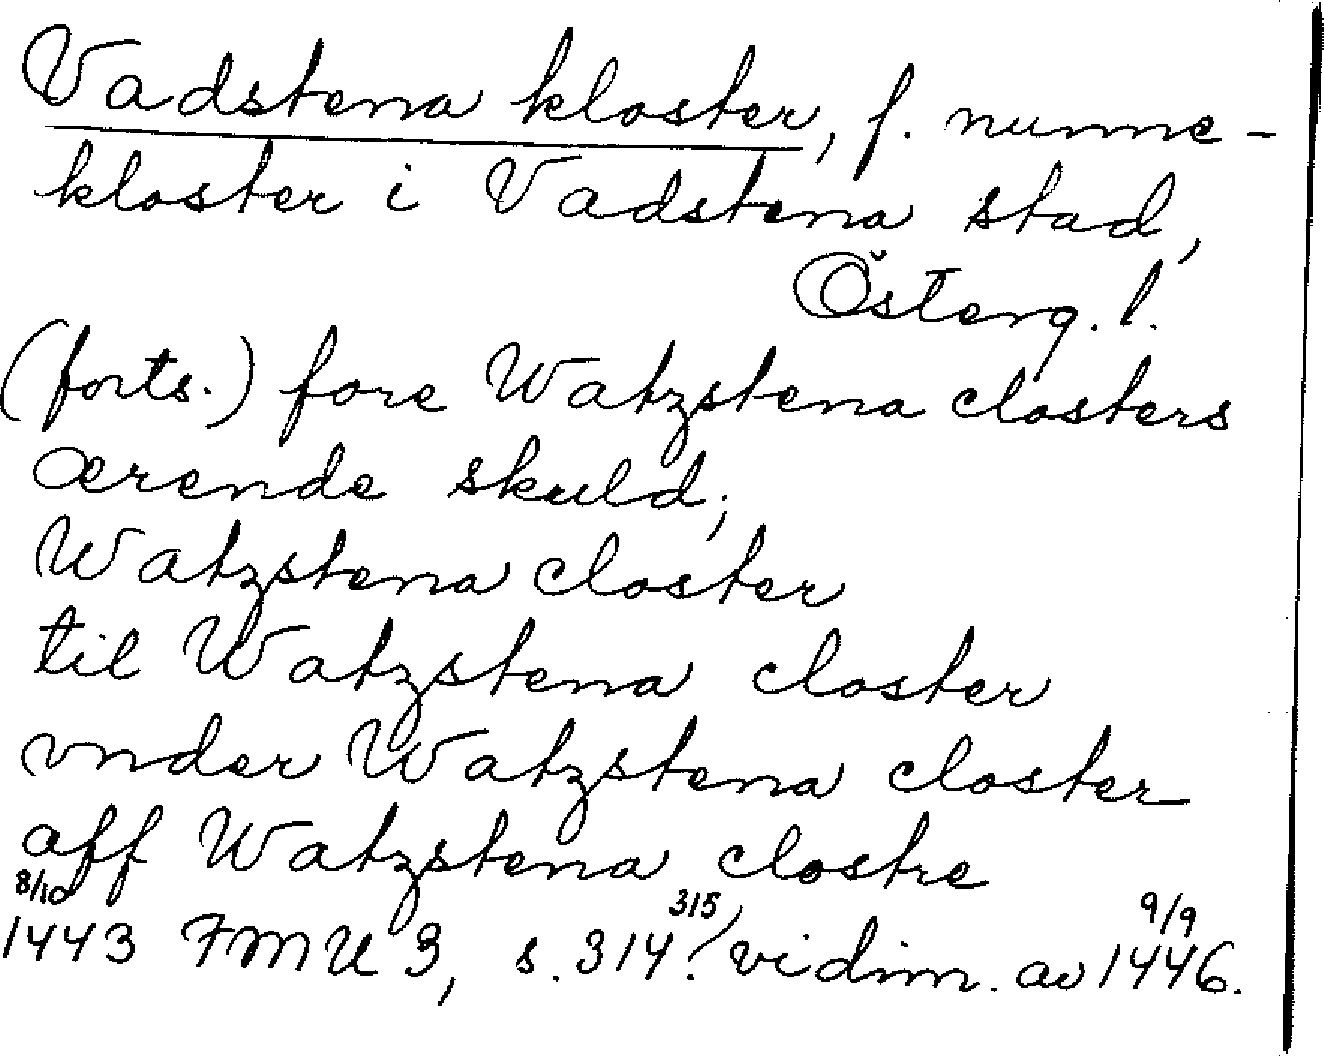 Vadstena kloster, f. nunne-
kloster i Vadstena stad,
Österg. l.
(forts.) fore Watzstena closters
ærende skuld;
Watzstena closter
til Watzstena closter
vnder Watzstena closter
aff Watzstena clostre
8/10 315 9/9
1443 FMU 3, s. 314. vidim. av 1446.